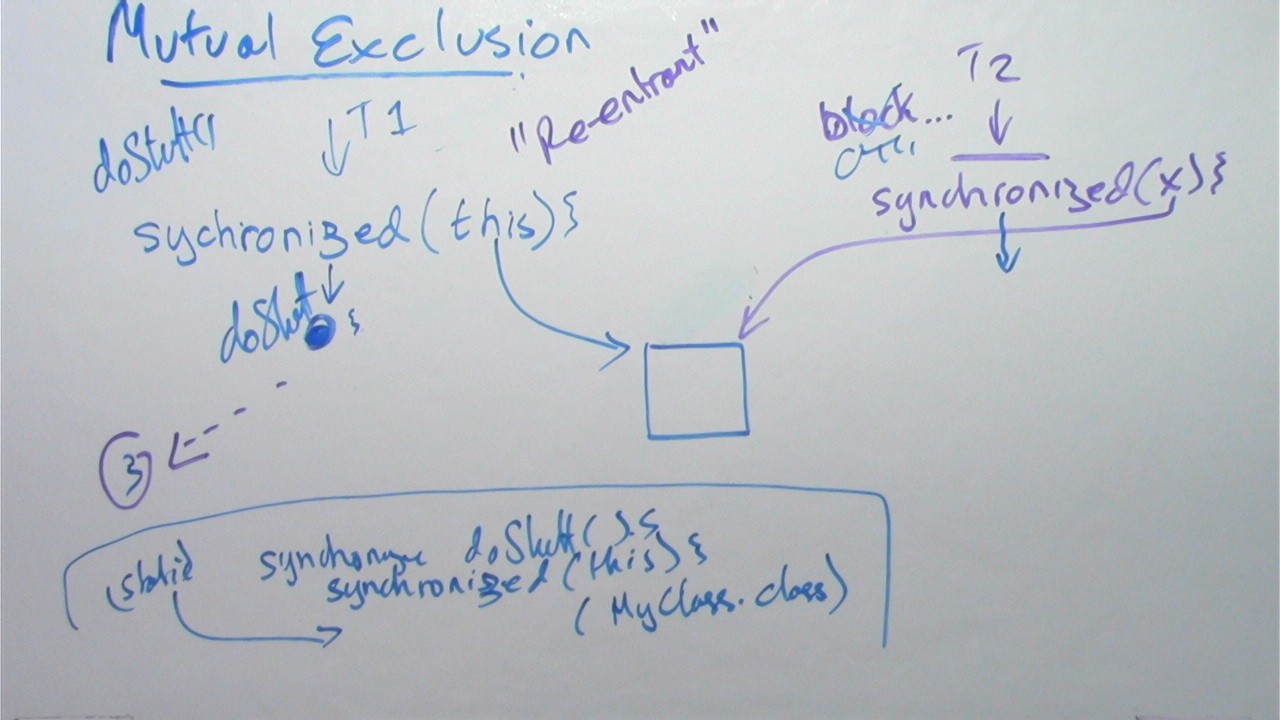 Mutual Exclusion
"Re-entrant"
doStuff()
T1
sychronized(this){
doStuf
}
3
T2
block...
synchronized(x){
(static synchonize doStuff(){
synchronized(this){
(MyClass.class)